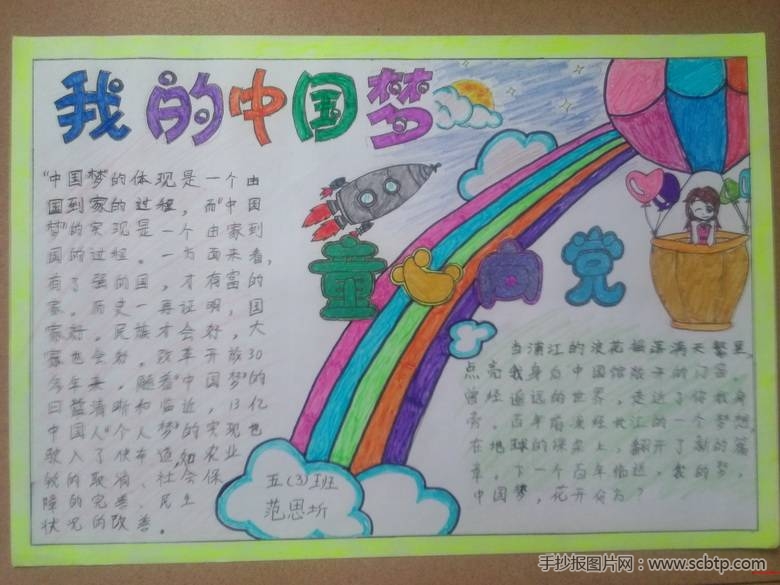 我的中国梦
"中国梦"的体现是一个由
国到家的过程，而"中国
梦"的实现是一个由家到
国的过程。一方面来看，
有了强的国，才有富的
家。历史一再证明，国
家好。民族才会好，大
家也会好。改革开放30
余年来，随着"中国梦"的
日益清晰和临近，13亿
中国人"个人梦"的实现也
驶入了快车道，如农业
税的取消、社会保
障的完善、民生
状况的改善。
童心向党
当浦江的浪花摇落满天繁星，
点亮我身为中国馆孩子的门窗。
曾经遥远的世界，走近了你我身
旁。百年前滨江的一个梦想
在地球的上，翻开了新的篇
章。下一个百年临近，我的梦，
中国梦，花开为？
五(3)班
范思圻
手抄报图片网：www.scbtp.com